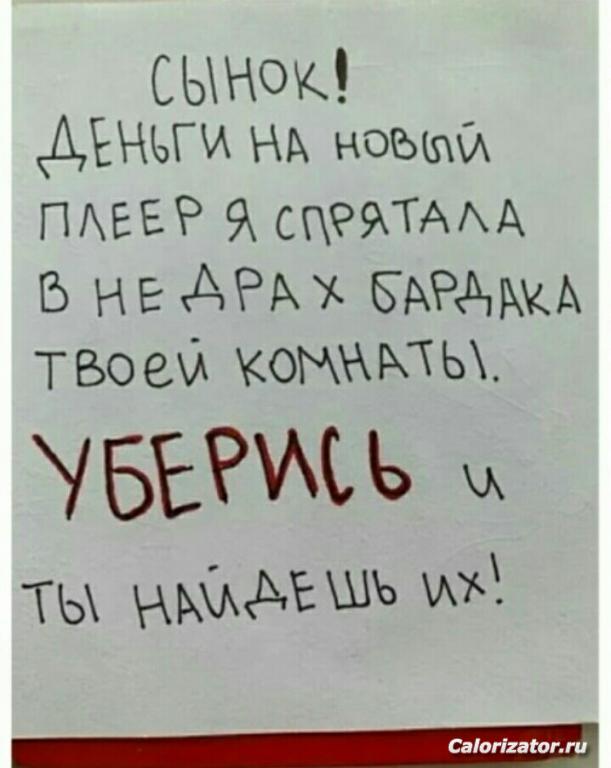 СЫНОК!
ДЕНЬГИ НА НОВЫЙ
ПЛЕЕР Я СПРЯТАЛА
В НЕДРАХ БАРДАКА
ТВОЕЙ КОМНАТЫ.
УБЕРИСЬ И
ТЫ НАЙДЕШЬ ИХ!
Calorizator.ru